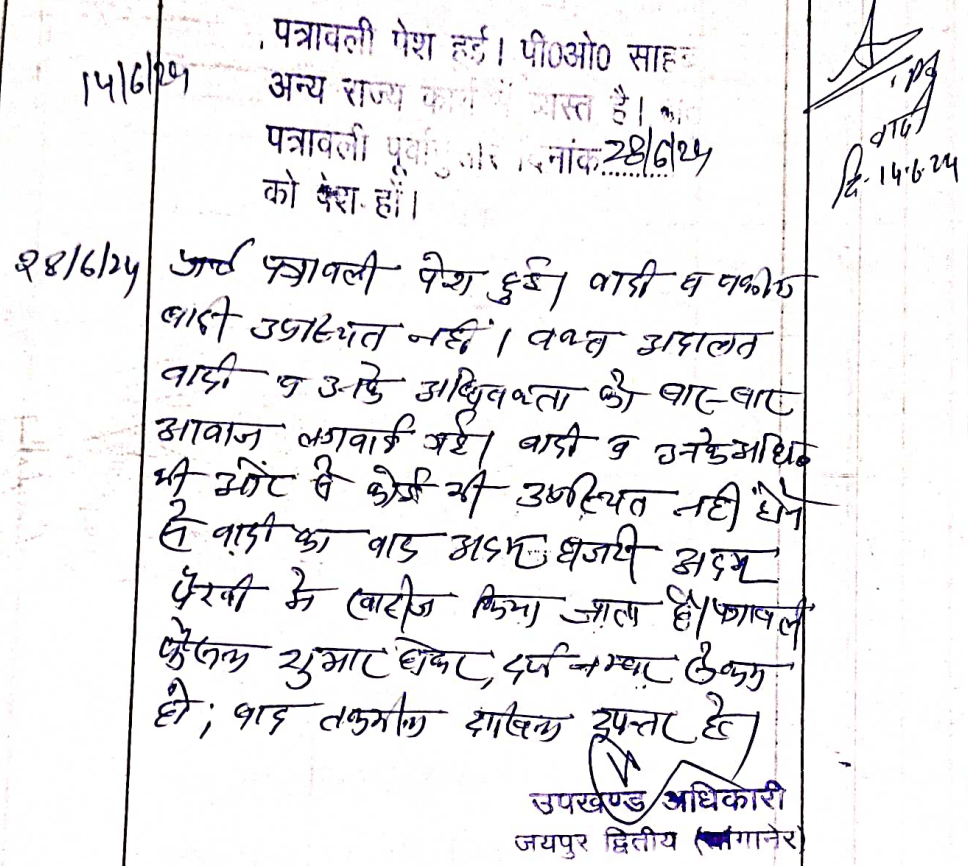 पत्रावली पेश हुई। पी०ओ० साहब
14/6/24
अन्य राज्य कार्य में व्यस्त है।
पत्रावली पूर्वानुसार दिनांक 28/6/24
को पेश हों।
वादी
दि. 14.6.24
28/6/24 पत्रावली पेश हुई। वादी व वकील
वादी उपस्थित नहीं। वक्त अदालत
वादी व उनके अधिवक्ता को बार-बार
आवाज लगवाई गई। वादी व उनके अधि०
की ओर से कोई भी उपस्थित नहीं होने
से वादी का वाद अदम हाजरी अदम
पैरवी में खारीज किया जाता है। पत्रावली
फैसल शुमार होकर, दर्ज नम्बर से कम
हो, वाद तकमील दाखिल दफ्तर हो।
उपखण्ड अधिकारी
जयपुर द्वितीय (सांगानेर)